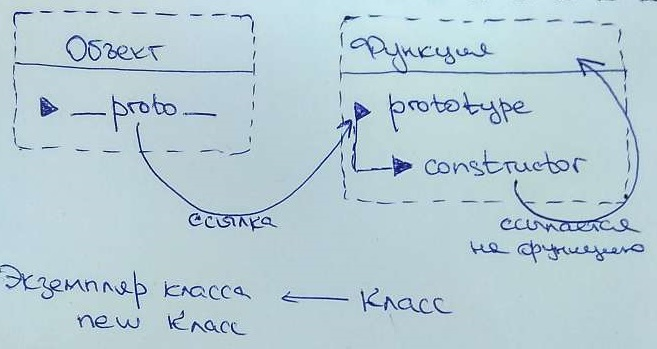 Объект
__proto__
ссылка
Функция
prototype
constructor
ссылается
на функцию
Экземпляр класса
new Класс
Класс